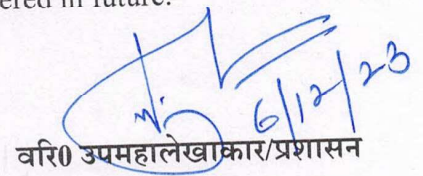 ered in future.
6/12/23
वरि0 उपमहालेखाकार/प्रशासन